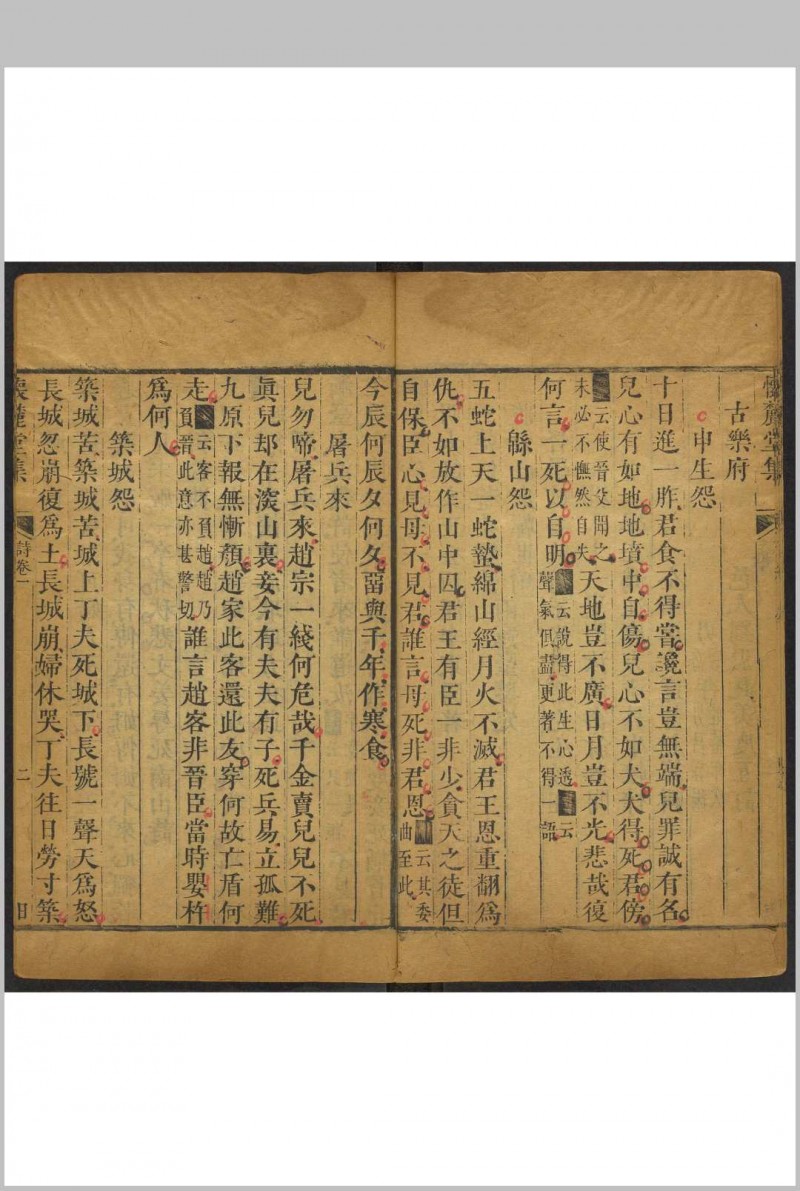 懷麓堂集
古樂府
申生怨
十日進一胙君食不得嘗讒言豈無端兒罪誠有名
兒心有如地地墳中自傷兒心不如犬犬得死君傍
云使晉父聞之
未必不憮然自失
天地豈不廣日月豈不光悲哉復
何言一死以自明
云說得此生心透
云
聲氣俱盡更著不得一語
緜山怨
五蛇上天一蛇蟄綿山經月火不滅君王恩重翻爲
仇不如放作山中囚君王有臣一非少貪天之徒但
自保臣心見母不見君誰言母死非君恩
云其委
曲至此
今辰何辰夕何夕留與千年作寒食
屠兵來
兒勿啼屠兵來趙宗一綫何危哉千金賣兒兒不死
眞兒却在深山裏妾今有夫夫有子死兵易立孤難
九原下報無慚顏趙家此客還此友穿何故亡盾何
走
云客不負趙趙乃
負晉此意亦甚警切
誰言趙客非晉臣當時嬰杵
爲何人
築城怨
築城苦築城苦城上丁夫死城下長號一聲天爲怒
長城忽崩復爲土長城崩婦休哭丁夫往日勞寸築
懷麓堂集
詩卷一
二